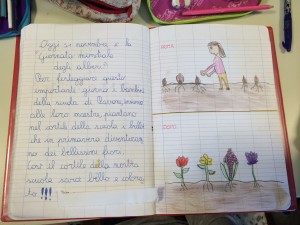 Oggi 21 novembre è la
"Giornata mondiale
degli alberi"
Per festeggiare questo
importante giorno i bambini
della scuola di insieme
alle loro maestre, piantano
nel cortile della scuola i bulbi
che in primavera diventeran
no dei bellissimi fiori.
Così il cortile della nostra
scuola sarà bello e colora
to !!!